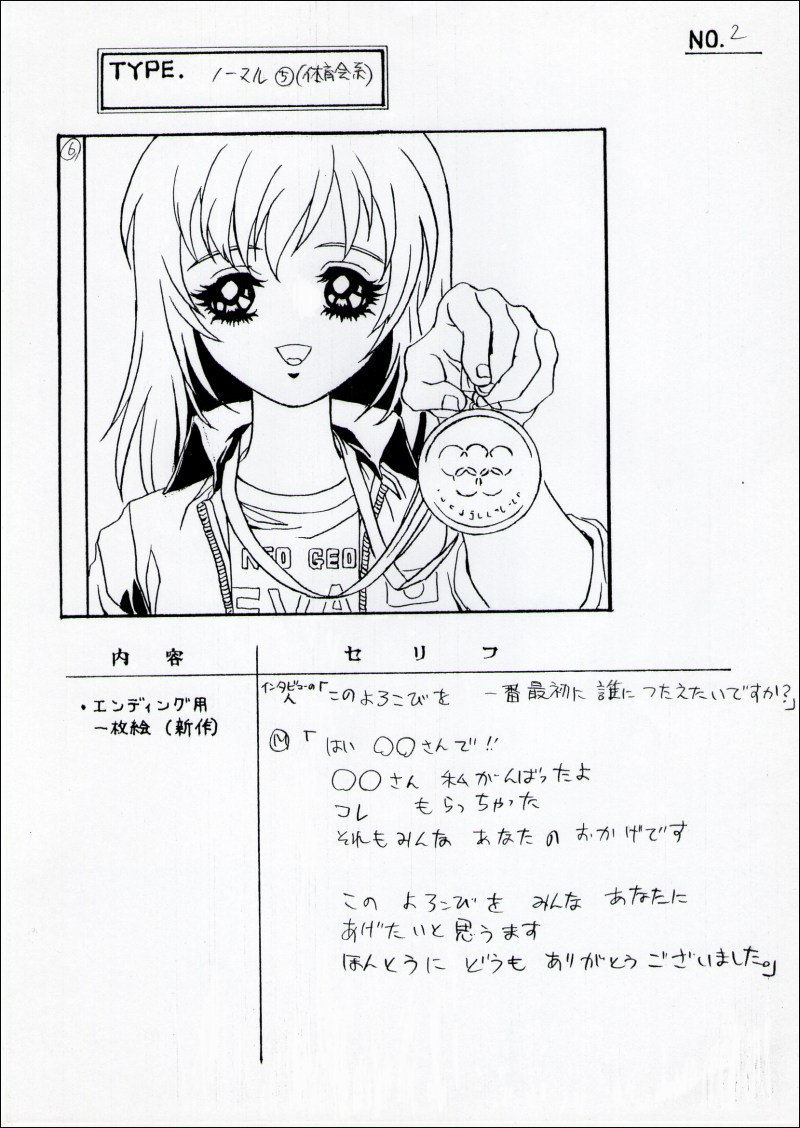 NO. 2
TYPE. ノーマル⑤(体育会系)
⑥
NEO GEO
EVA
内容
セリフ
・エンディング用
一枚絵(新作)
インタビューの人「このよろこびを 一番最初に 誰に つたえたいですか?」
Ⓜ「はい ○○さんで!!
○○さん 私がんばったよ
コレ もらっちゃった
それもみんな あなたの おかげです
この よろこびを みんな あなたに
あげたいと思うます
ほんとうに どうも ありがとうございました。」